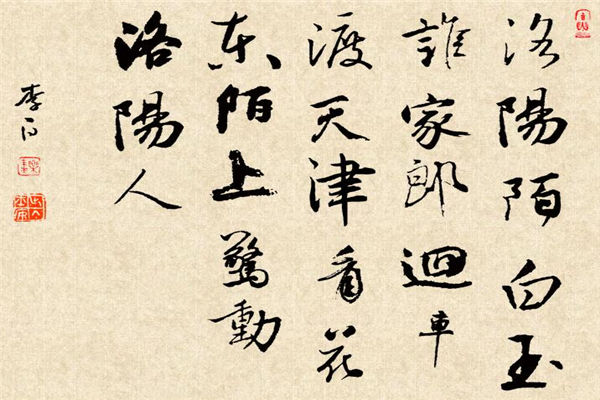 洛陽陌白玉
誰家郎迴車
渡天津看花
东陌上驚動
洛陽人
李白